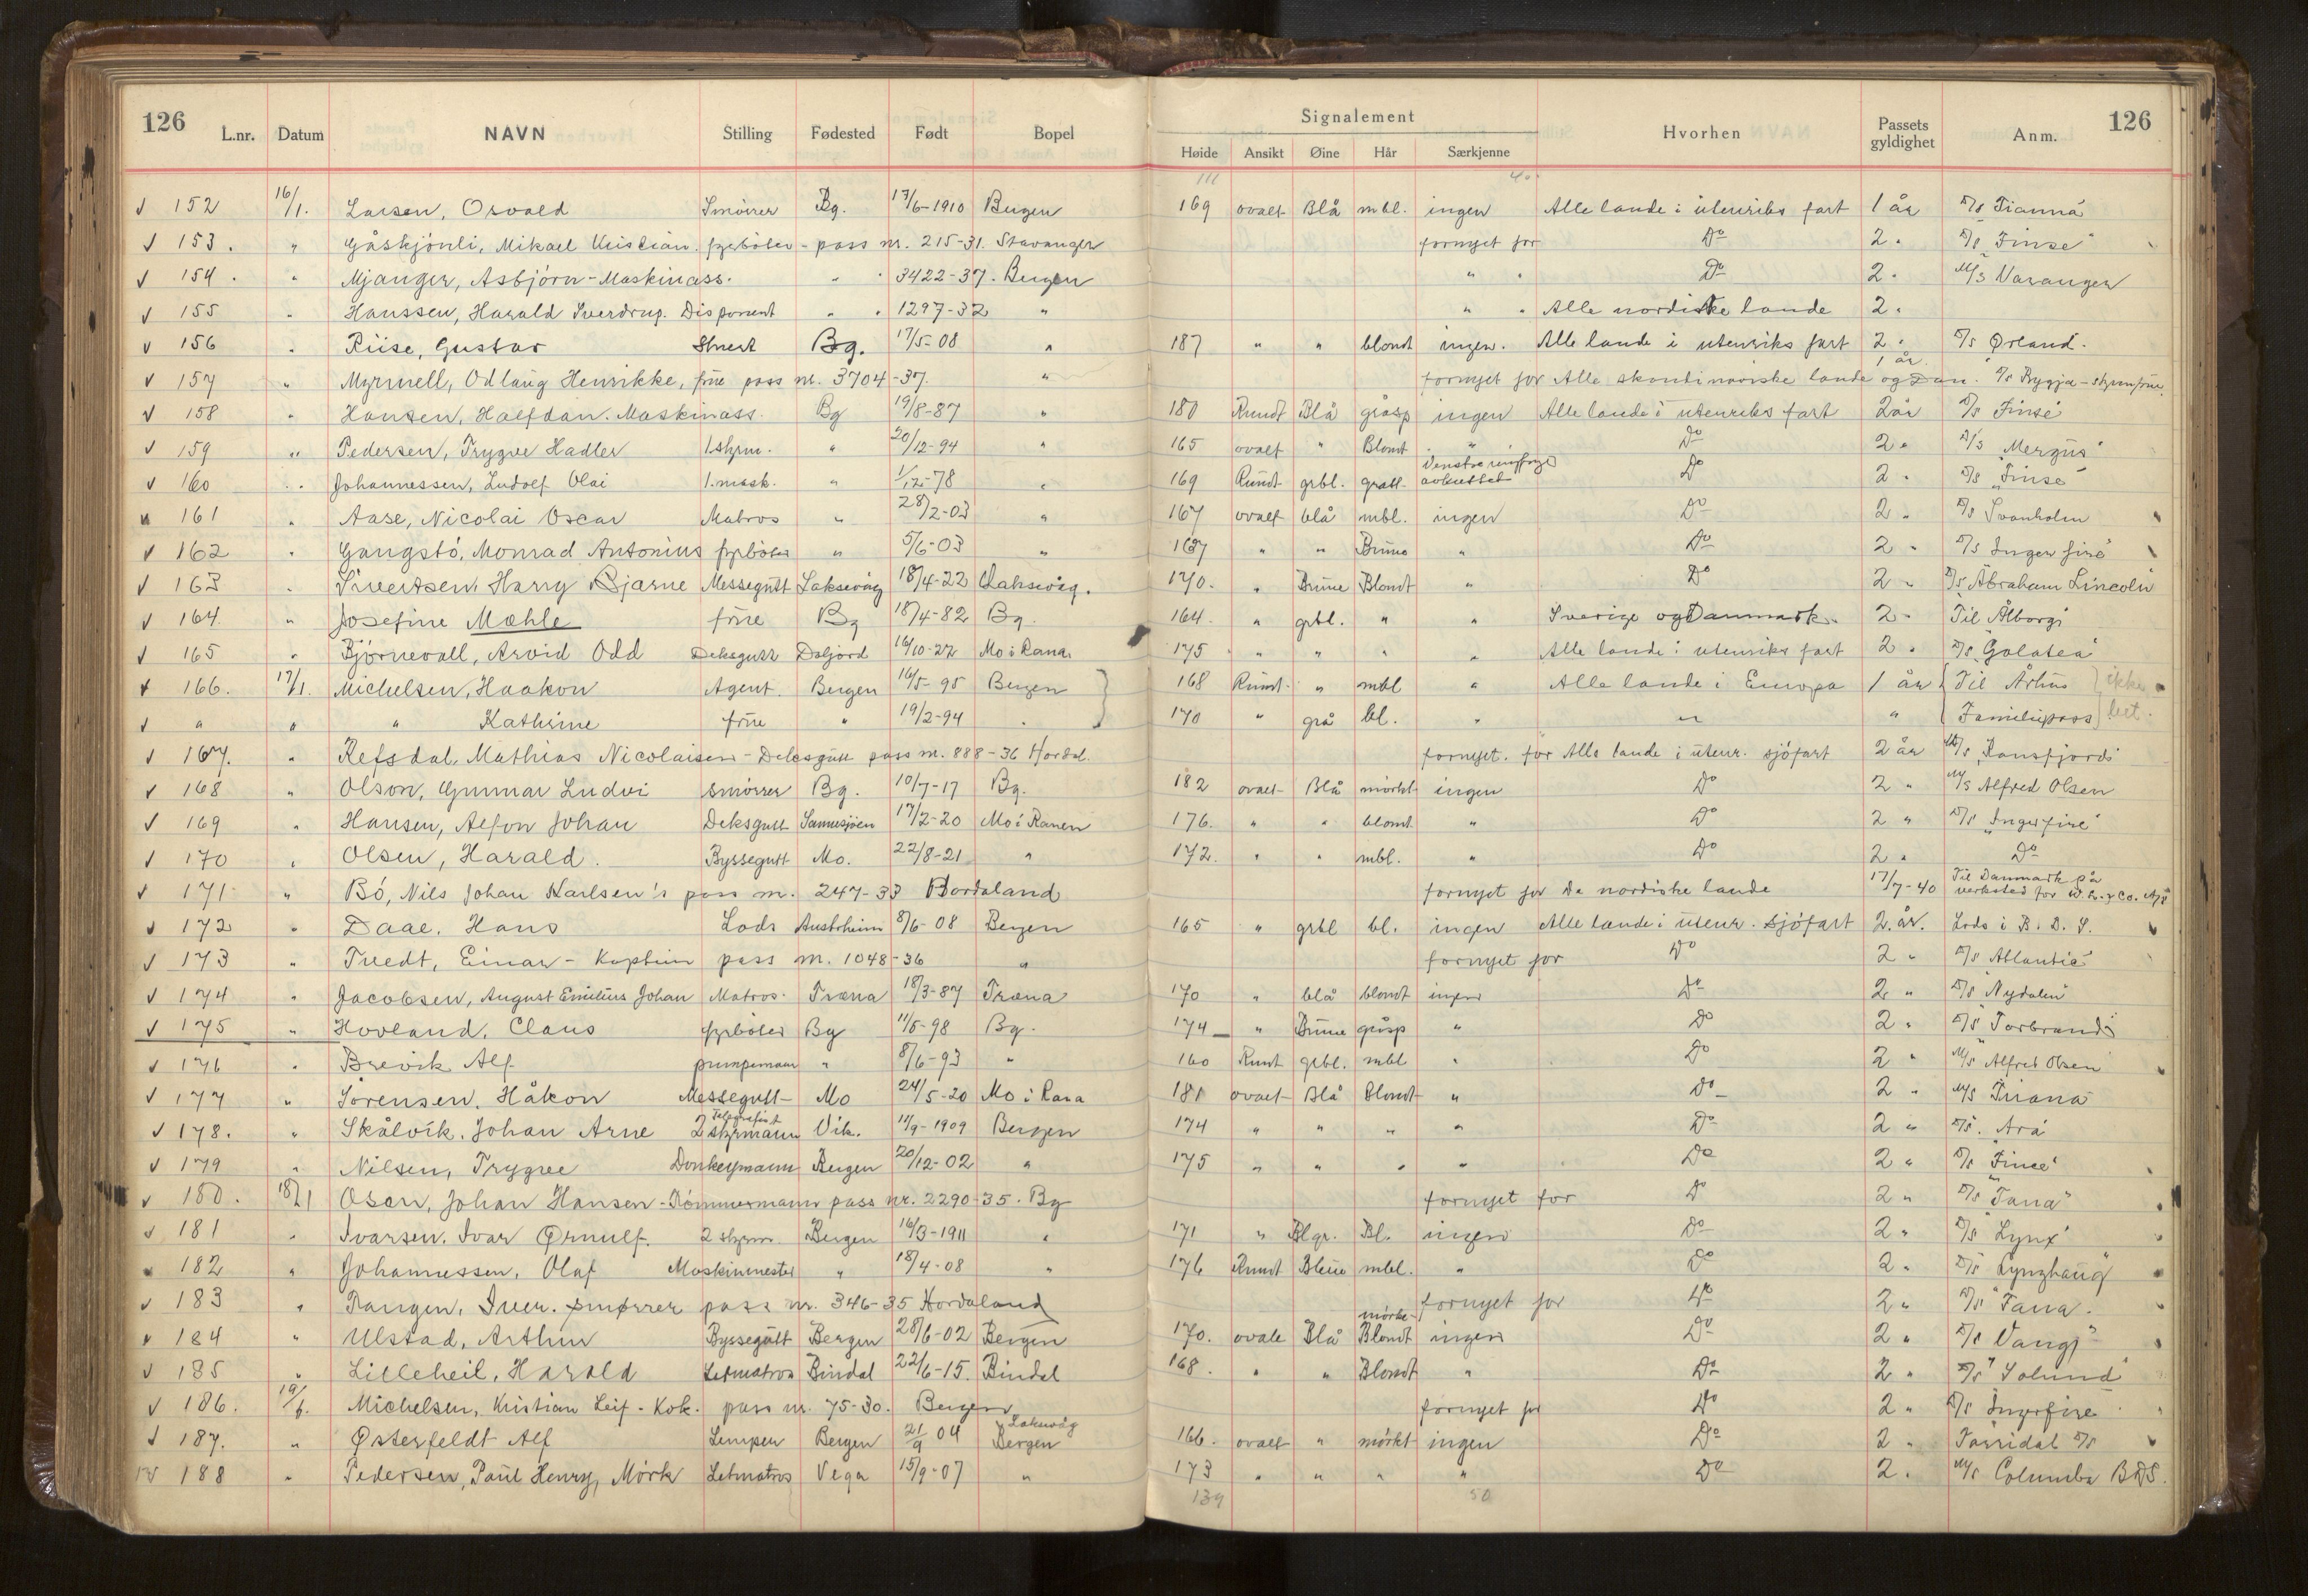 126 L.nr. Datum NAVN Stilling Fødested Født Bopel Signalement Hvorhen Passets gyldighet Anm. 126
Høide Ansikt Øine Hår Særkjenne
111
152 16/1. Larsen, Osvald Smører Bg. 17/6-1910 Bergen 169 ovalt Blå mbl. ingen Alle lande i utenriks fart 1 år D/S
153. " Mikael Kristian. fyrbøter - pass nr. 215-31. Stavanger fornyet for Do 2 " D/S "Finse"
154. " Mjanger, Asbjörn - Maskinass. " " 3422-37. Bergen " " Do 2 " M/S Varanger
155 " Hanssen, Harald Sverdrup. Disponent " " 1297-32 " " " Alle nordiske lande 2 "
156 " Riise, Gustav Stuert Bg. 17/5-08 " 187 " " blondt ingen. Alle lande i utenriks fart 2 " D/S Ørland.
157 " Myrmell, Odlaug Henrikke, frue pass nr. 3704-37. " fornyet for Alle skandinaviske lande og Dan. 1 år.
158 " Hansen, Halfdan. Maskinass. Bg 19/8-87 " 180 Rundt Blå gråsp ingen Alle lande i utenriks fart 2 år D/S Finse
159 " Pedersen, Trygve Hadler 1. styrm. " 20/12-94 " 165 ovalt " Blondt " Do 2 " D/S "Mergus"
160 " Johannessen, Ludolf Olai 1. mask. " 1/12-78 " 169 Rundt grbl. Venstre Do 2 " D/S "Finse"
161 " Aase, Nicolai Oscar Matros " 28/2-03 " 167 ovalt blå mbl. ingen Do 2 " D/S Svanholm
162 " Gangstö, Monrad Antonius fyrbøter " 5/6-03 " 167 " " Brune " Do 2 " D/S
163 " Sivertsen, Harry Bjarne Messegutt Laksevåg 18/4-22 Laksevåg. 170. " Brune Blondt " Do 2 " D/S Abraham Lincoln
164. " Josefine Mæhle frue Bg 18/4-82 Bg. 164. " grbl. " " Sverige og Danmark. 2 " Til Ålborg
165 " Björnevall, Arvid Odd Deksgutt 16/10-22 Mo i Rana 175 " " " " Alle lande i utenriks fart 2 " D/S "Galatea"
166. 17/1. Michelsen, Haakon Agent. Bergen 16/5-95 Bergen 168 Rundt " mbl " Alle lande i Europa 1 år Til Århus ikke
" " " Kathrine frue " 19/2-94 " 170 " grå bl. " " " Familiepass
167. " Refsdal, Mathias Nicolaisen - Deksgutt pass nr. 888-36 Hordal. fornyet. for Alle lande i utenr. sjöfart 2 år
168 " Olson, Gunnar Ludvi smører Bg. 10/7-17 Bg. 182 ovalt Blå mörkt ingen Do 2 " M/S Alfred Olsen
169 " Hansen, Alfon Johan Deksgutt 17/2-20 Mo i Ranen 176. " " blondt " Do 2 " D/S
170 " Olsen, Harald. Byssegutt Mo. 22/8-21 " 172. " " mbl. " Do 2 " Do
171 " Bö, Nils Johan Karlsen's pass nr. 247-33 Hordaland fornyet for De nordiske lande 17/7-40 Til Danmark på verksted for
172 " Daae, Hans Lods Austrheim 8/6-08 Bergen 165 " grbl bl. ingen Alle lande i utenr. sjöfart 2 år. Lods i B. D. S.
173 " Tvedt, Einar - Kaptein pass nr. 1048-36 " fornyet for Do 2 " D/S "Atlantic"
174 " Jacobsen, August Emilius Johan Matros. Træna 18/3-87 Træna 170 " blå blondt ingen Do 2 " D/S "Nydalen"
175 " Hovland, Claus fyrbøter Bg 11/5-98 Bg. 174 " Brune gråsp " Do 2 " D/S "Torbrand"
176 " Brevik Alf pumpemann " 8/6-93 " 160 Rundt grbl. mbl " Do 2 " M/S Alfred Olsen
177 " Sörensen, Håkon Messegutt Mo 24/5-20 Mo i Rana 181 ovalt Blå Blondt " Do 2 " M/S
178. " Skålvik, Johan Arne Telegrafist 2 styrmann Vik. 11/9-1909 Bergen 174 " " " " Do 2 " D/S. Ara
179 " Nilsen, Trygve Donkeymann Bergen 20/12-02 " 175 " " " " Do 2 " D/S "Finse"
180. 18/1 Osen, Johan Hansen - Tömmermann pass nr. 2290-35. Bg fornyet for Do 2 " D/S "Tana"
181 " Ivarsen, Ivar Ørnulf. 2 styrm. Bergen 16/3-1911 " 171 " Blgr. Bl. ingen Do 2 " D/S "Lynx"
182 " Johannessen, Olaf Maskinmester " 18/4-08 " 176 Rundt mbl. " Do 2 " D/S Lynghaug
183 " Iver. smører pass nr. 346-35 Hordaland fornyet for Do 2 " D/S "Tana".
184 " Ulstad, Arthur Byssegutt Bergen 28/6-02 Bergen 170. ovale Blå mörke- Blondt ingen Do 2 " D/S "Vang"
185 " Lilleheil, Harald Letmatros Bindal 22/6-15. Bindal 168. " " Blondt " Do 2 " D/S "Solund"
186. 19/1. Michelsen, Kristian Leif - Kok. pass nr. 75-30. Bergen fornyet for Do 2 " D/S
187. " Østerfeldt Alf Lempen Bergen 21/9 04 Laksevåg Bergen 166. ovalt " mörkt ingen Do 2 " D/S
188 " Pedersen, Paul Henry, Mörk Letmatros Vega 15/9-07 " 173 " " " " Do 2 " M/S Columba BDS.
139 50